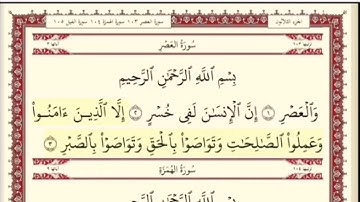 الجزء الثلاثون سورة العصر ١٠٣ سورة الهمزة ١٠٤ سورة الفيل ١٠٥
سُورَةُ العَصْرِ
بِسْمِ اللَّهِ الرَّحْمَٰنِ الرَّحِيمِ
وَالْعَصْرِ ١ إِنَّ الْإِنسَٰنَ لَفِى خُسْرٍ ٢ إِلَّا الَّذِينَ ءَامَنُوا۟
وَعَمِلُوا۟ الصَّٰلِحَٰتِ وَتَوَاصَوْا۟ بِالْحَقِّ وَتَوَاصَوْا۟ بِالصَّبْرِ ٣
سُورَةُ الهُمَزَةِ
بِسْمِ اللَّهِ الرَّحْمَٰنِ الرَّحِيمِ